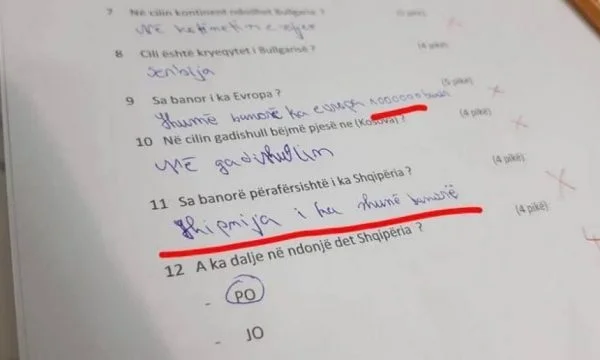 7 Në cilin kontinent ndodhet Bullgaria ?
Në
8 Cili është kryeqyteti i Bullgarisë ? (4 pikë)
Serbija
9 Sa banor i ka Evropa ? (5 pikë)
shumë banorë ka evropa
10 Në cilin gadishull bëjmë pjesë ne (Kosova) ? (4 pikë)
Në gadishullin
11 Sa banorë përafërsishtë i ka Shqipëria ? (4 pikë)
shipnija i ka shumë banorë
12 A ka dalje në ndonjë det Shqipëria ? (4 pikë)
- PO
- JO